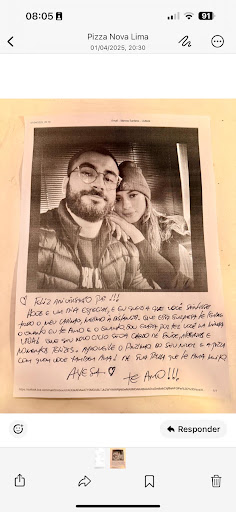 08:05
91
Pizza Nova Lima
01/04/2025, 20:30
♡ FELIZ ANIVERSÁRIO DIE!!!
HOJE É UM DIA ESPECIAL, E EU QUERIA QUE VOCÊ SENTISSE
TODO O MEU CARINHO, MESMO À DISTÂNCIA. QUE ESSA SURPRESA TE LEMBRE
O QUANTO EU TE AMO E O QUANTO SOU GRATA POR TER VOCÊ NA MINHA
VIDA! QUE SEU NOVO CICLO SEJA CHEIO DE SAÚDE,
MOMENTOS FELIZES. APROVEITE O DOZINHO DO SEU NÍVER, E A PIZZA
COM QUEM VOCÊ TAMBÉM AMA!
AYESA ♡ TE AMO!!!
Responder